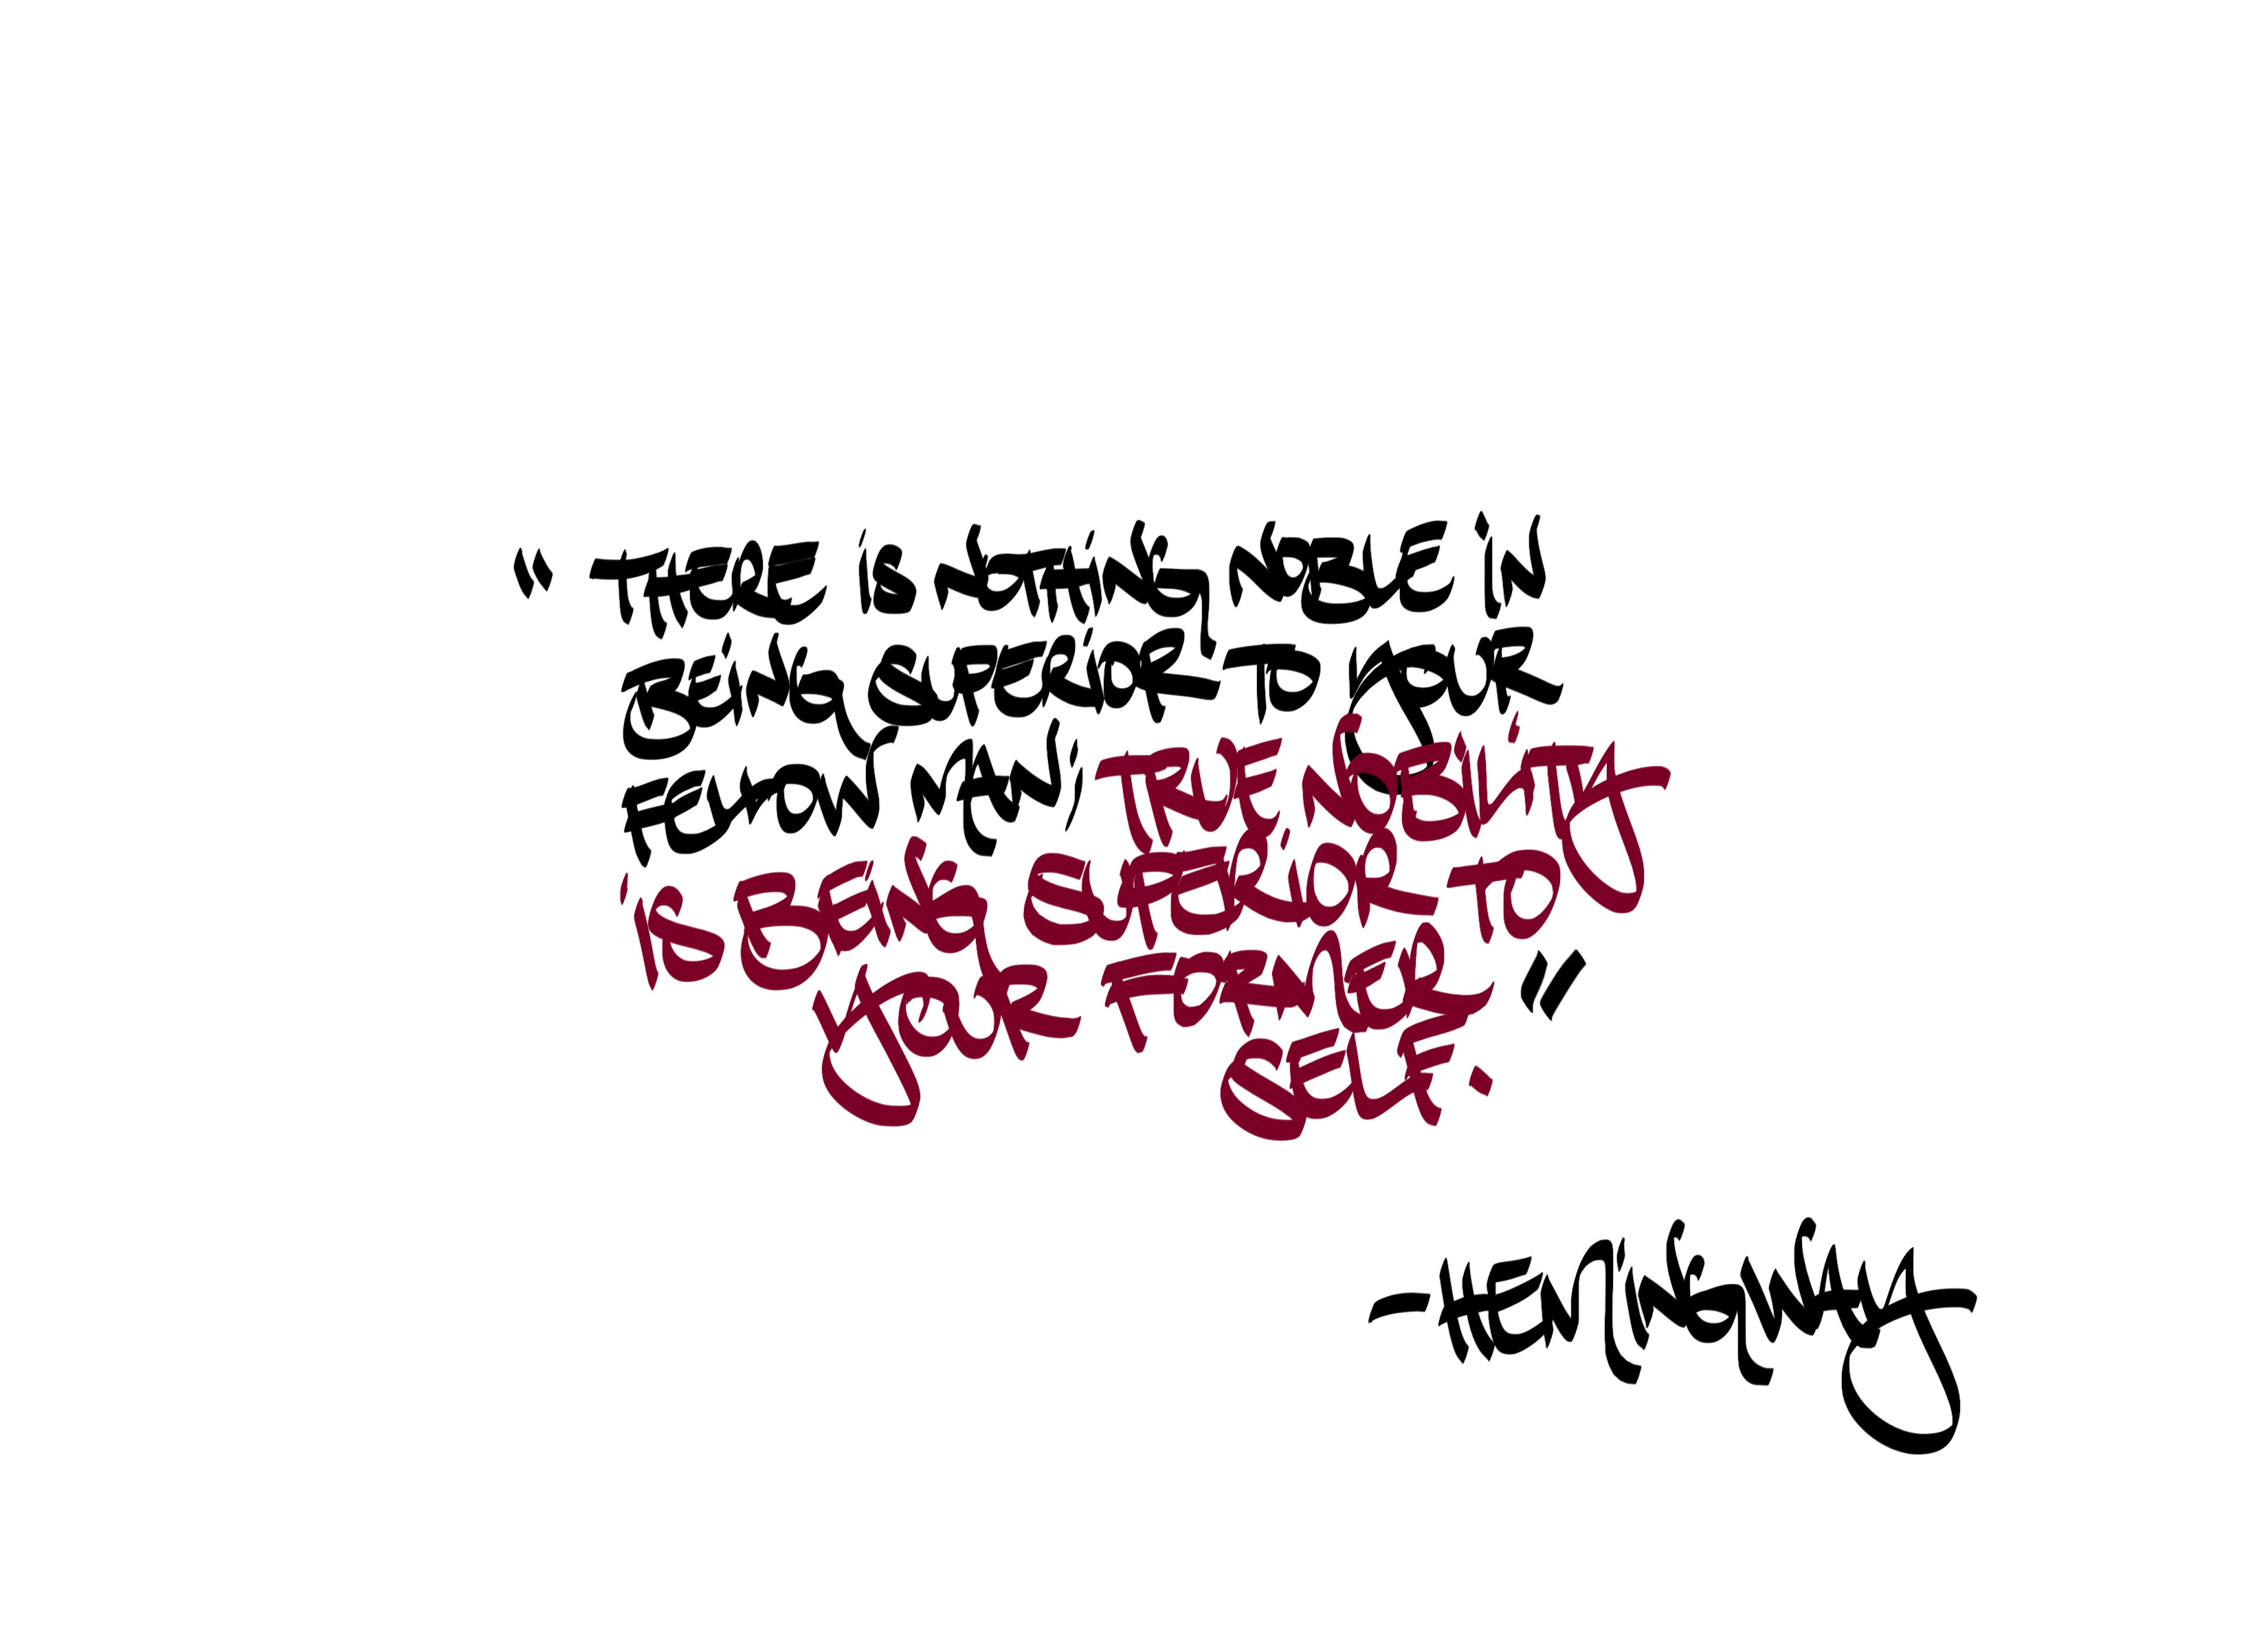 “ THERE iS NOTHiNG NOBLE iN
BEiNG SUPERiOR TO YOUR
FELLOW MAN, TRUE NOBiLiTY
iS BEiNG SUPERiOR TO
YOUR FORMER ”
SELF.
-HEMiNGWAY